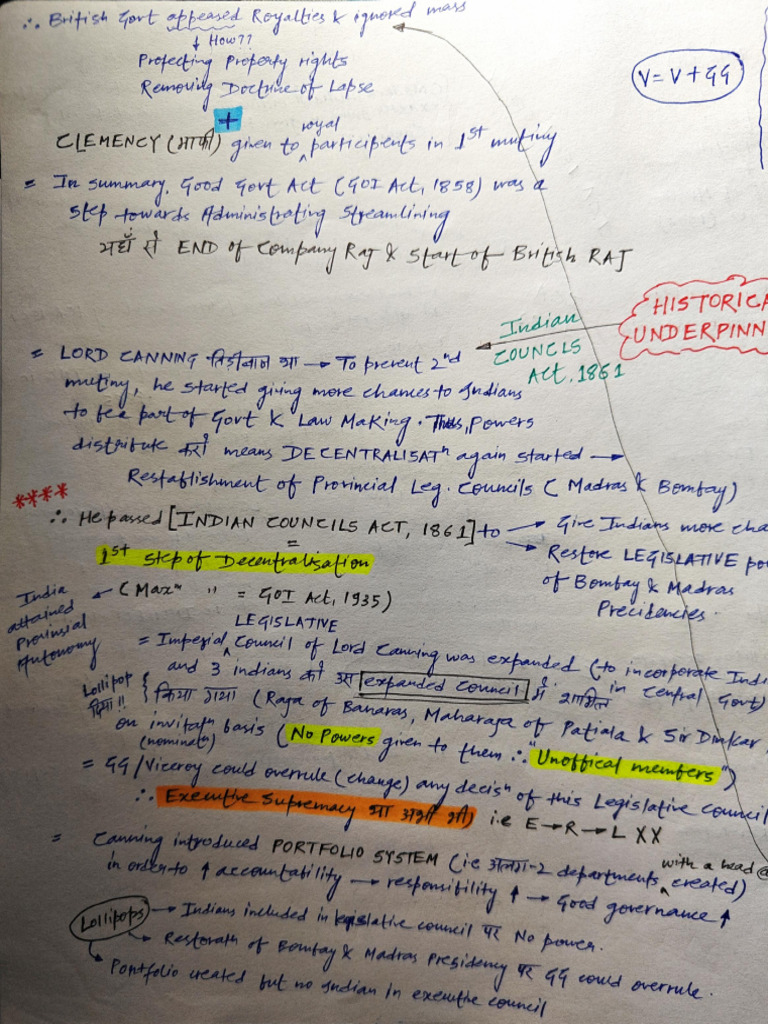 ∴ British Govt appeased Royalties & ignored mass
↓ How??
Protecting Property rights
Removing Doctrine of Lapse
V = V + GG
+
CLEMENCY (माफी) given to royal participents in 1st mutiny
= In summary, Good Govt Act (GOI Act, 1858) was a
step towards Administrating Streamlining
यहाँ से END of Company Raj & Start of British RAJ
HISTORICA
UNDERPINN
Indian
COUNCLS
Act, 1861
= LORD CANNING था → To prevent 2nd
mutiny, he started giving more chances to Indians
to be a part of Govt & Law Making. Thus, Powers
distribute करो means DECENTRALISATn again started →
Restablishment of Provincial Leg. Councils (Madras & Bombay)
****
∴ He passed [INDIAN COUNCILS ACT, 1861] to → Give Indians more cha
→ Restore LEGISLATIVE po
of Bombay & Madras
Precidencies.
1st Step of Decentralisation
(Maxm " = GOI Act, 1935)
India
attained
Provinsial
Autonomy
= Imperial LEGISLATIVE Council of Lord Canning was expanded (to incorporate Indi
in Central Govt)
and 3 indians को उस expanded council में शामिल
Lollipop
दिया!!
किया गया (Raja of Banaras, Maharaja of Patiala & Sir Dinkar
on invitatn basis (No Powers given to them ∴ "Unoffical members")
(nominatn)
= GG/Viceroy could overrule (change) any decisn of this Legislative council
∴ Executive Supremacy था अभी भी) i.e E → R → L XX
= Canning introduced PORTFOLIO SYSTEM (ie अलग-2 departments with a head created)
in order to ↑ accountability → responsibility ↑ → Good governance ↑
Lollipops → Indians included in legislative council पर No power.
→ Restoratn of Bombay & Madras Presidency पर GG could overrule.
→ Portfolio created but no Indian in executive council